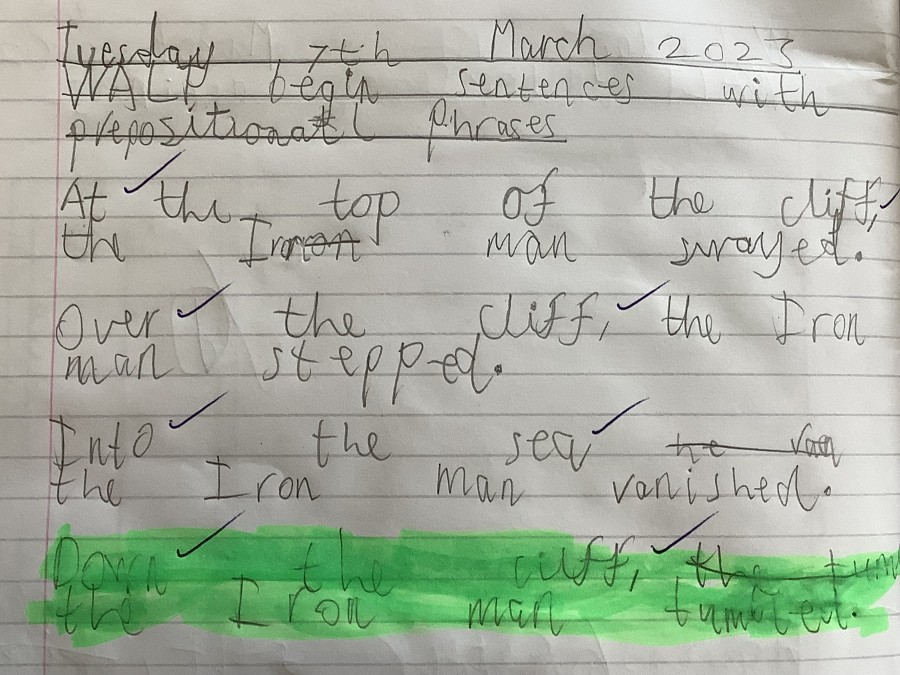 Tuesday 7th March 2023
WALT begin sentences with
prepositional phrases
At the top of the cliff,
the Iron man swayed.
Over the cliff, the Iron
man stepped.
Into the sea he van
the Iron man vanished.
Down the cliff, the tum
the Iron man tumbled.